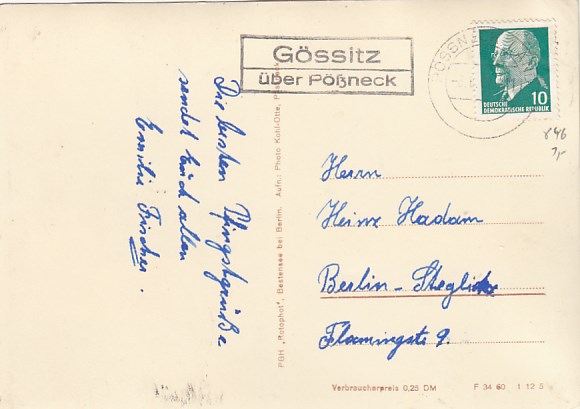 Gössitz
über Pößneck
10
DEUTSCHE
DEMOKRATISCHE REPUBLIK
Die besten Pfingstgrüße
sendet Euch allen
Familie Fischer.
PGH „Rotophot", Bestensee bei Berlin. Aufn.: Photo Kohl-Otte,
Herrn
Heinz Hadam
Berlin-Steglitz
Flamingstr 9.
Verbraucherpreis 0,25 DM
F 34 60 1 12 5